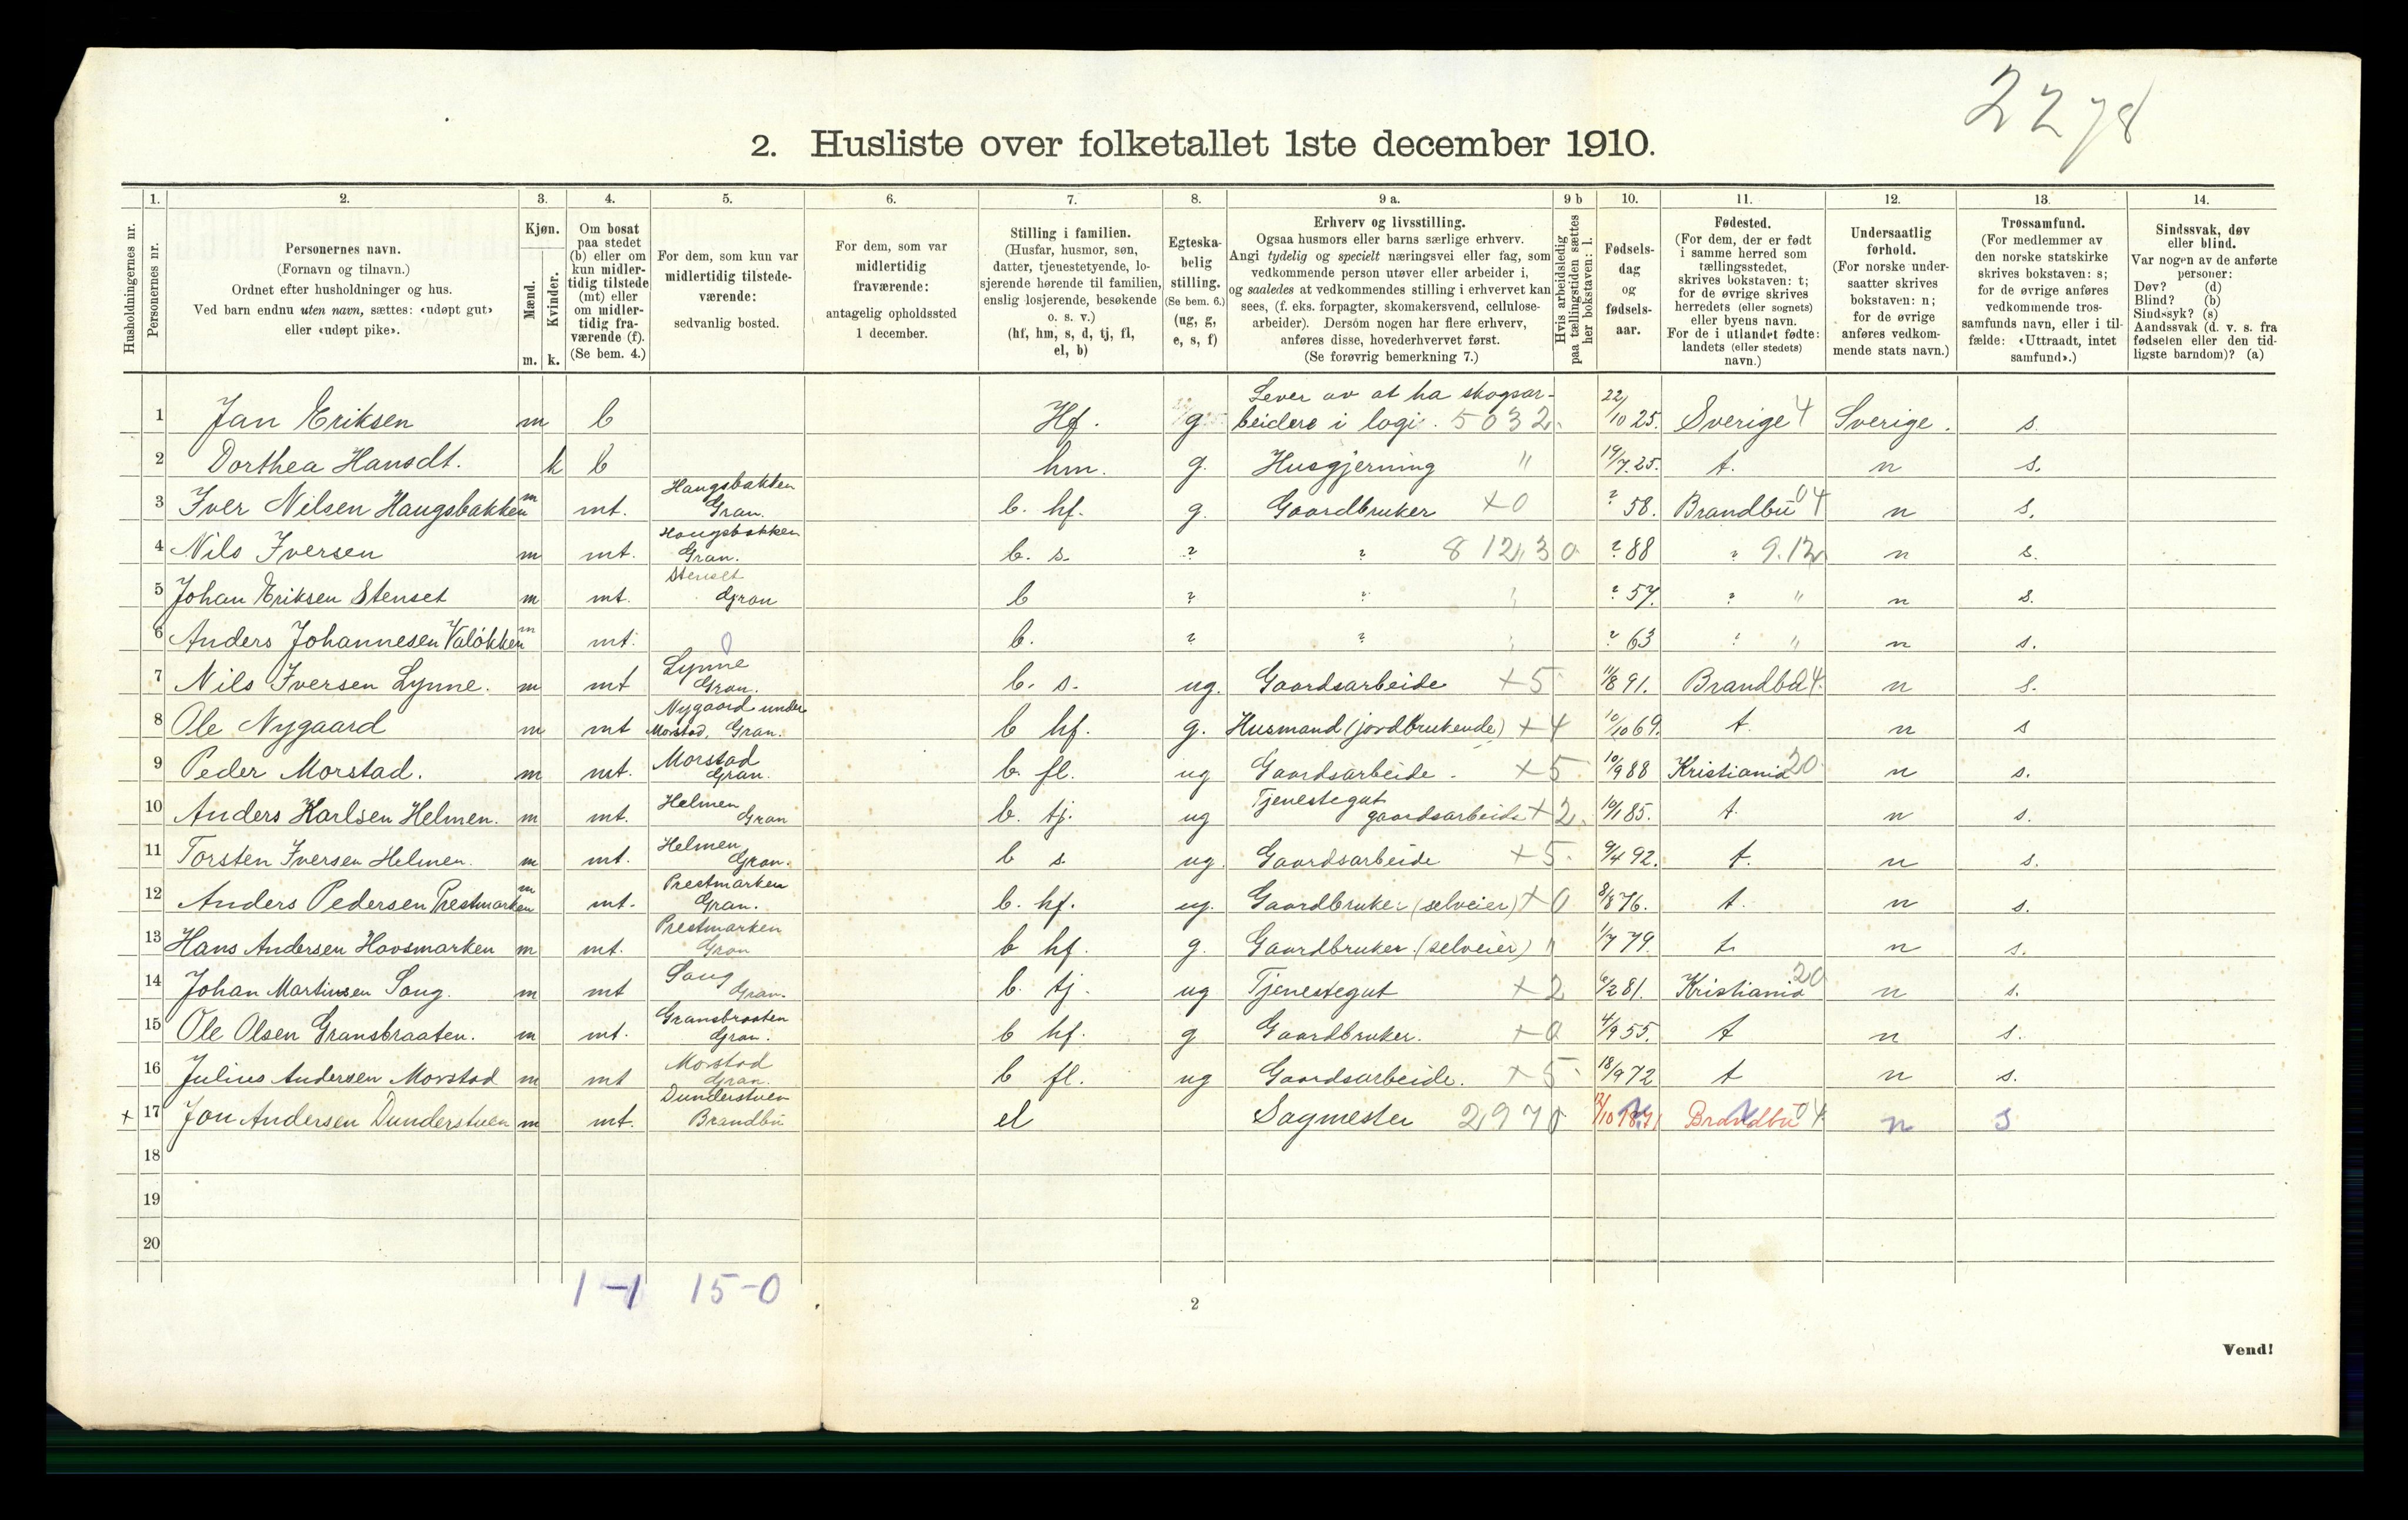 2278
2. Husliste over folketallet 1ste december 1910.
Husholdningernes nr.
1. Personernes nr.
2. Personernes navn. (Fornavn og tilnavn.) Ordnet efter husholdninger og hus. Ved barn endnu uten navn, sættes: «udøpt gut» eller «udøpt pike».
3. Kjøn. Mænd. m. Kvinder. k.
4. Om bosat paa stedet (b) eller om kun midlertidig tilstede (mt) eller om midlertidig fraværende (f). (Se bem. 4.)
5. For dem, som kun var midlertidig tilstedeværende: sedvanlig bosted.
6. For dem, som var midlertidig fraværende: antagelig opholdssted 1 december.
7. Stilling i familien. (Husfar, husmor, søn, datter, tjenestetyende, losjerende hørende til familien, enslig losjerende, besøkende o. s. v.) (hf, hm, s, d, tj, fl, el, b)
8. Egteskabelig stilling. (Se bem. 6.) (ug, g, e, s, f)
9 a. Erhverv og livsstilling. Ogsaa husmors eller barns særlige erhverv. Angi tydelig og specielt næringsvei eller fag, som vedkommende person utøver eller arbeider i, og saaledes at vedkommendes stilling i erhvervet kan sees, (f. eks. forpagter, skomakersvend, cellulosearbeider). Dersom nogen har flere erhverv, anføres disse, hovederhvervet først. (Se forøvrig bemerkning 7.)
9 b Hvis arbeidsledig paa tællingstiden sættes her bokstaven: l.
10. Fødselsdag og fødselsaar.
11. Fødested. (For dem, der er født i samme herred som tællingsstedet, skrives bokstaven: t; for de øvrige skrives herredets (eller sognets) eller byens navn. For de i utlandet fødte: landets (eller stedets) navn.)
12. Undersaatlig forhold. (For norske undersaatter skrives bokstaven: n; for de øvrige anføres vedkommende stats navn.)
13. Trossamfund. (For medlemmer av den norske statskirke skrives bokstaven: s; for de øvrige anføres vedkommende trossamfunds navn, eller i tilfælde: «Uttraadt, intet samfund».)
14. Sindssvak, døv eller blind. Var nogen av de anførte personer: Døv? (d) Blind? (b) Sindssyk? (s) Aandssvak (d. v. s. fra fødselen eller den tidligste barndom)? (a)
1 Jan Eriksen m b Hf. g Lever av at ha skogsarbeidere i logi. 5032 22/10 25. Sverige 4 Sverige. s.
2 Dorthea Hansdt. k b hm. g. Husgjerning " 19/7 25. t. n s.
3 Iver Nilsen Haugsbakken m mt. Haugsbakken Gran. b. hf. g. Gaardbruker +0 ? 58. Brandbu 04 n s.
4 Nils Iversen m mt. Haugsbakken Gran. b. s. ? ? 8 12,30 ? 88 ? 9.12 n s.
5 Johan Eriksen Stenset m mt. Stenset Gran b ? ? " ? 57. ? " n s.
6 Anders Johannesen Valøkken m mt. 0 b. ? ? " ? 63 ? " n s.
7 Nils Iversen Lynne. m mt Lynne Gran. b. s. ug. Gaardsarbeide +5 11/8 91. Brandbu 4 n s.
8 Ole Nygaard m mt Nygaard under Morstad, Gran. b hf. g. Husmand (jordbrukende) +4 10/10 69. t. n s
9 Peder Morstad. m mt. Morstad Gran. b. fl. ug Gaardsarbeide - +5 10/9 88 Kristiania 20 n s.
10 Anders Karlsen Helmen. m mt. Helmen Gran b. tj. ug Tjenestegut gaardsarbeide +2. 10/1 85. t. n s.
11 Torsten Iversen Helmen. m mt. Helmen Gran. b s. ug. Gaardsarbeide +5. 9/4 92. t. n s.
12 Anders Pedersen Prestmarken m mt. Prestmarken Gran. b. hf. ug. Gaardbruker (selveier) +0 8/8 76. t. n s.
13 Hans Andersen Hovsmarken m mt. Prestmarken Gran b hf. g. Gaardbruker (selveier) " 1/7 79. t. n s.
14 Johan Martinsen Saug. m mt Saug Gran. b. tj. ug Tjenestegut +2 6/2 81. Kristiania 20 n s.
15 Ole Olsen Gransbraaten. m mt. Gransbraaten Gran. b hf. g Gaardbruker. +0 4/9 55. t n s.
16 Julius Andersen Morstad m mt Morstad Gran. b fl. ug Gaardsarbeide. +5 18/9 72 t n s.
+ 17 Jon Andersen Dunderstuen m mt. Dunderstuen Brandbu el Sagmester 2970 Brandbu 04 n s
18
19
20
1-1 15-0
2
Vend!